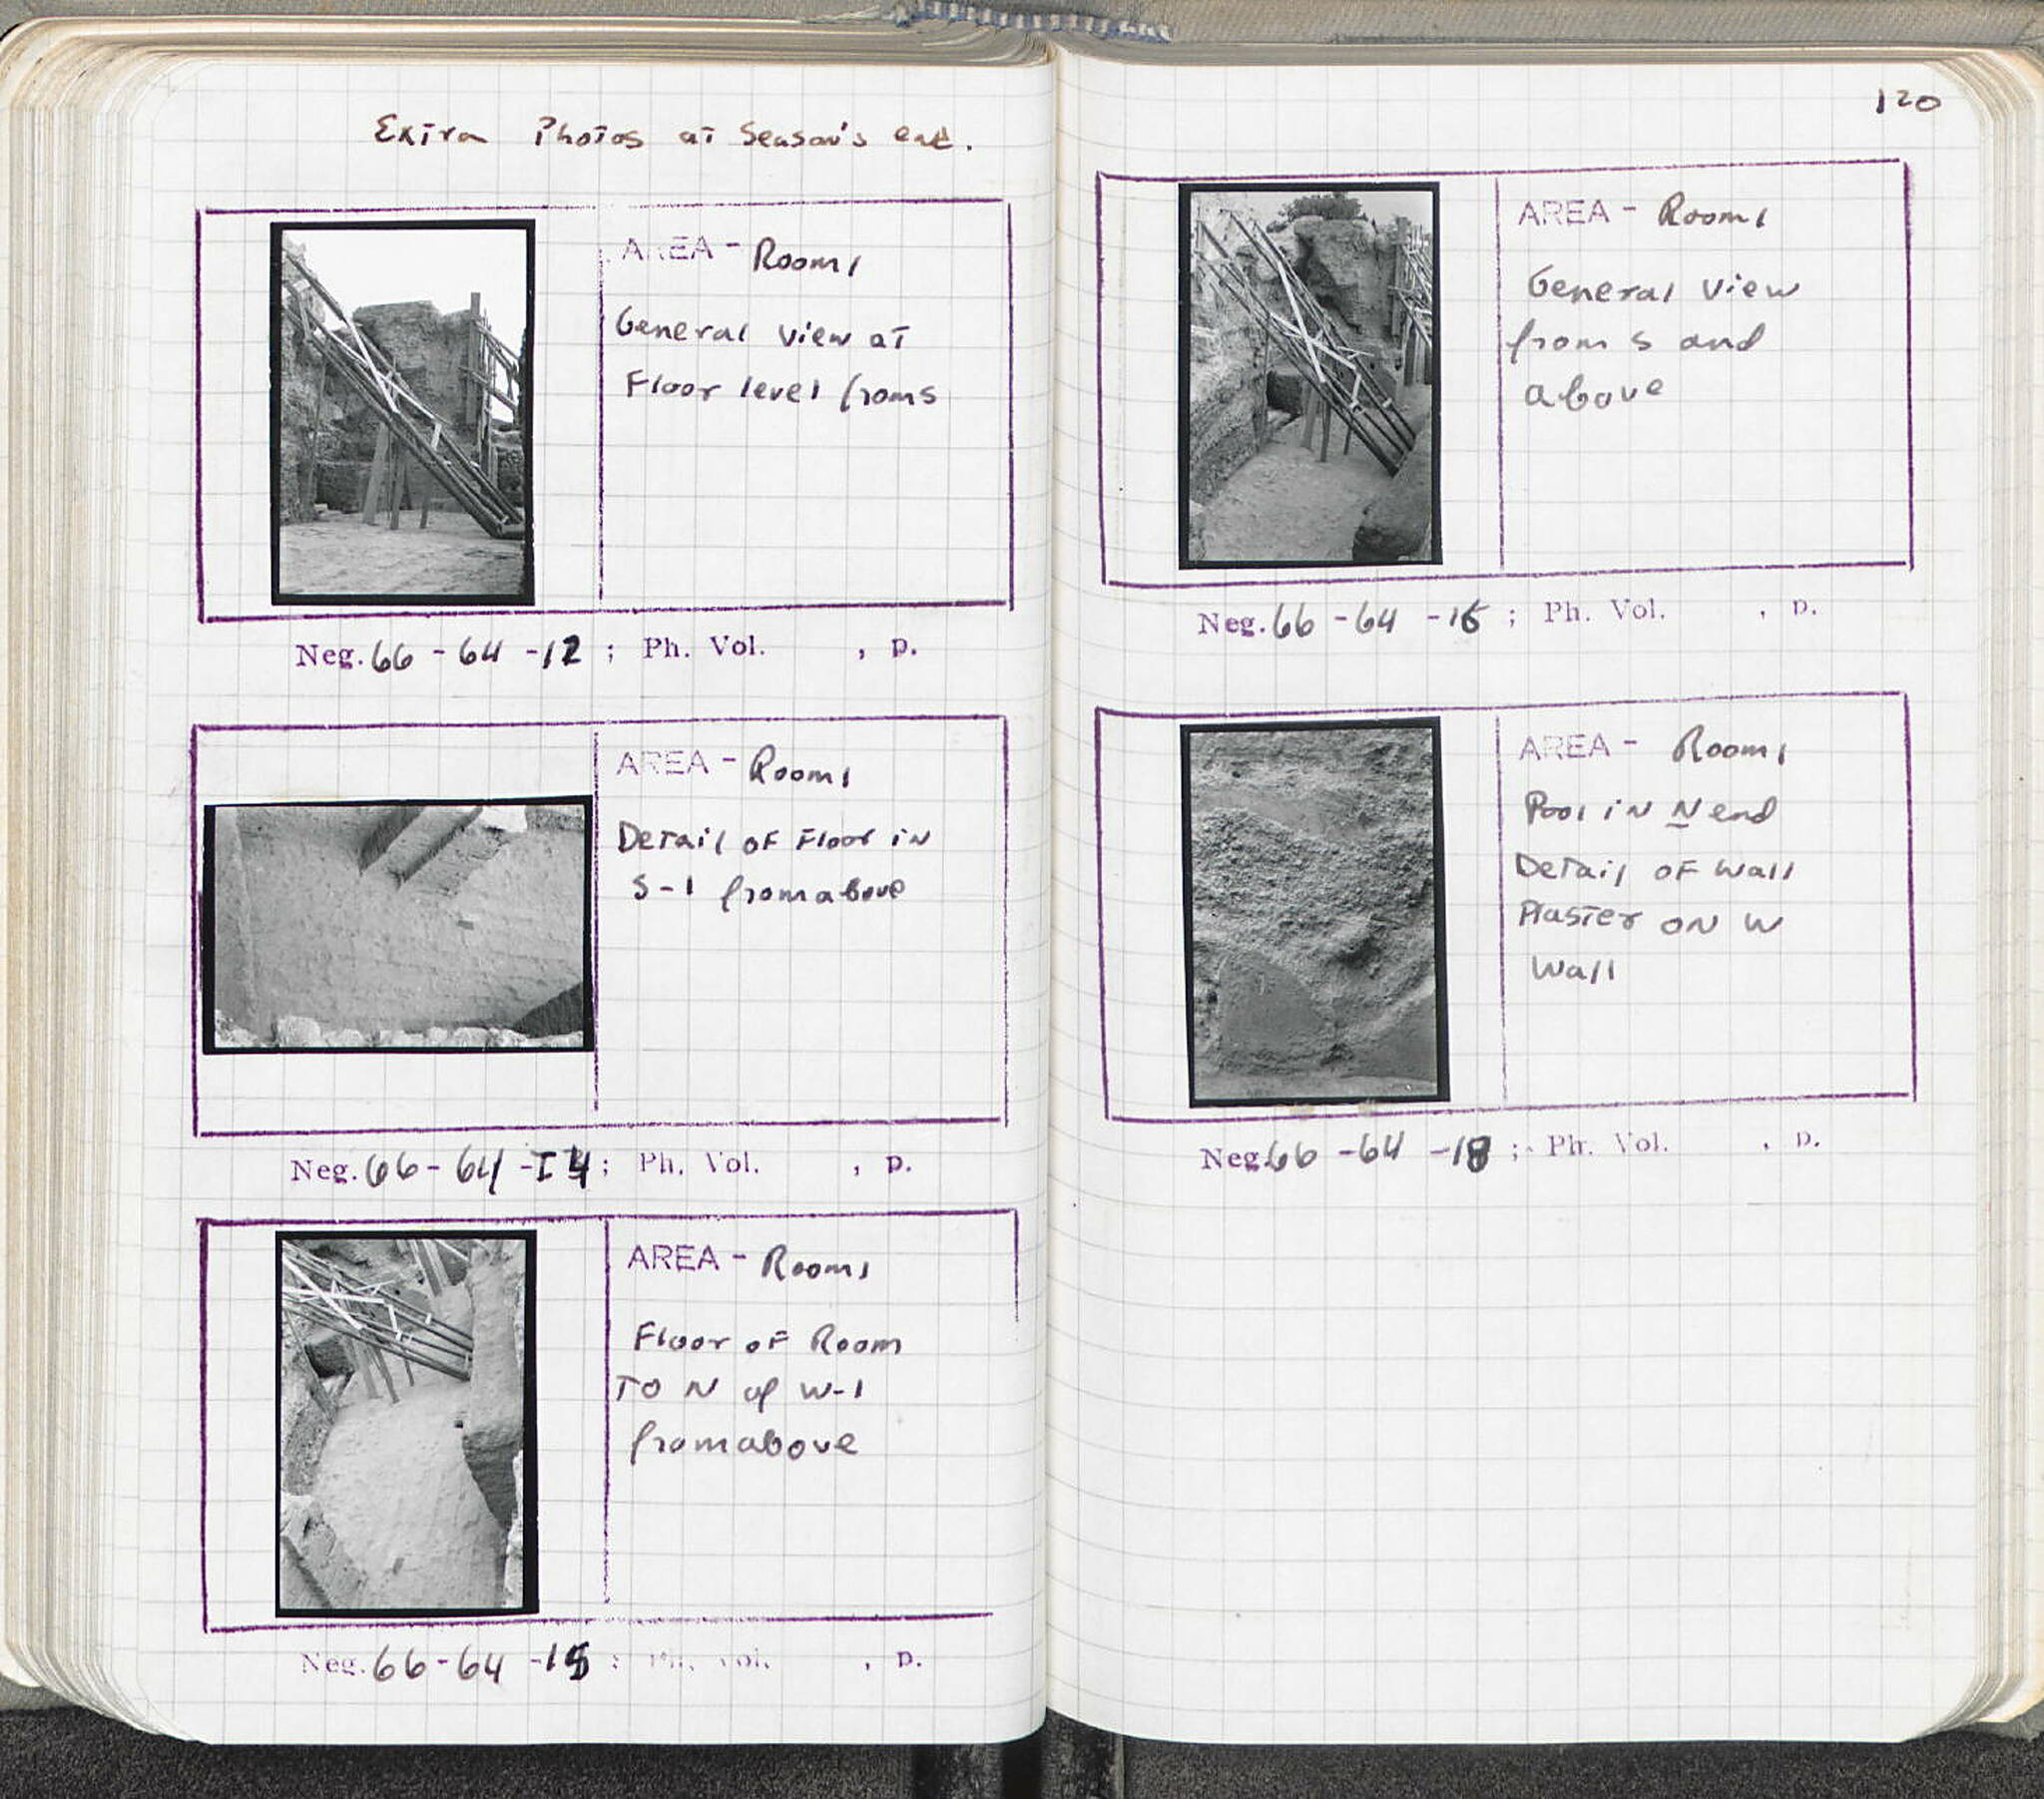 Extra Photos at Season's end.
AREA - Room 1
General view at
Floor level from S
Neg. 66 - 64 - 12 ; Ph. Vol. , p.
AREA - Room 1
Detail of Floor in
S-1 from above
Neg. 66 - 64 - 14 ; Ph. Vol. , p.
AREA - Room 1
Floor of Room
TO N of W-1
from above
Neg. 66 - 64 - 15 ; Ph. Vol. , p.
120
AREA - Room 1
General view
from S and
above
Neg. 66 - 64 - 16 ; Ph. Vol. , p.
AREA - Room 1
Pool in N end
Detail of wall
Plaster on W
wall
Neg. 66 - 64 - 18 ; Ph. Vol. , p.